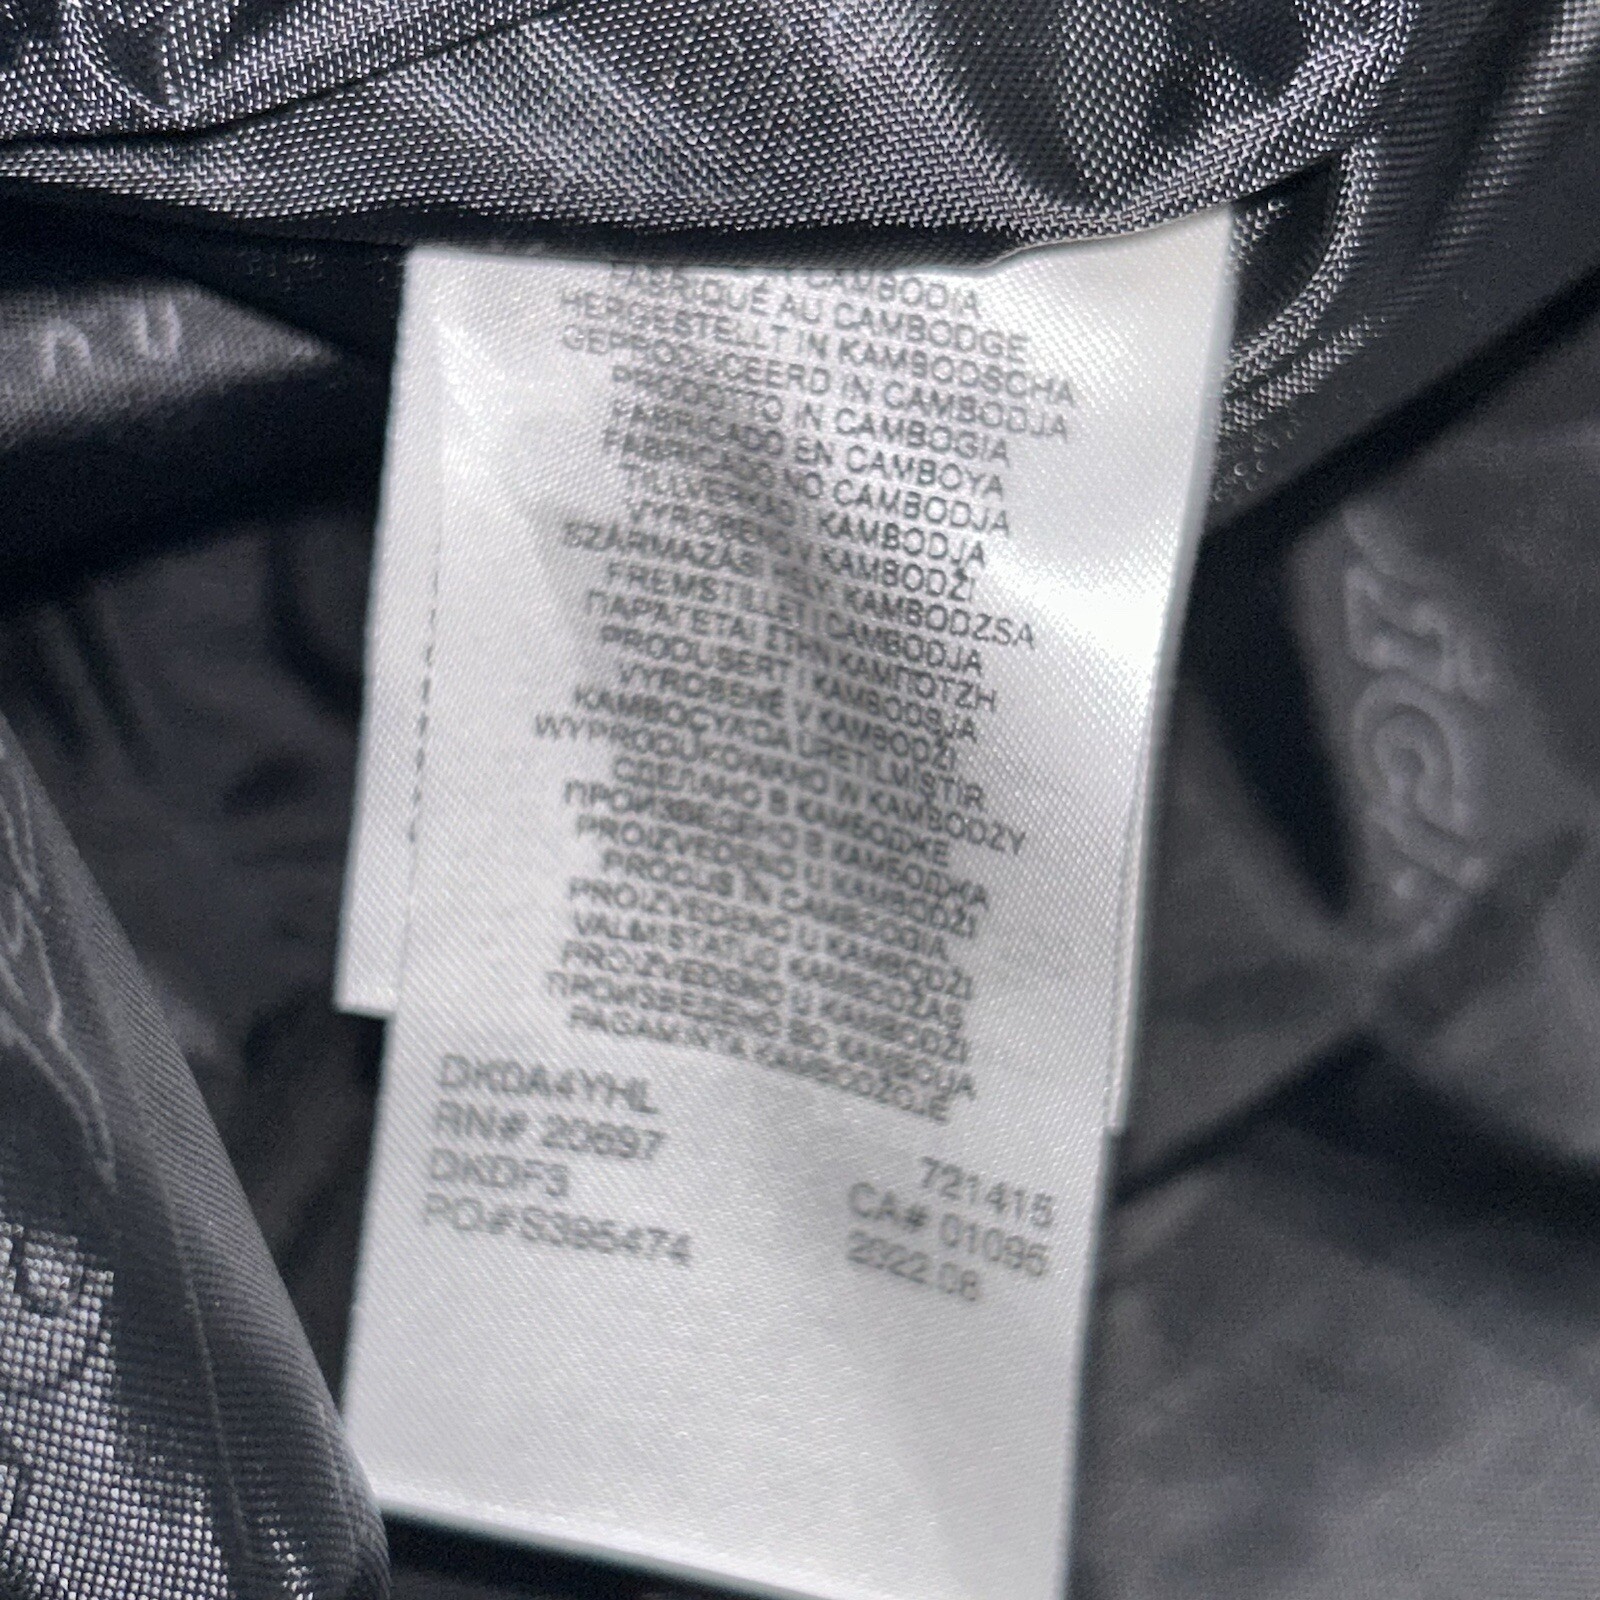 CAMBODIA
FABRIQUÉ AU CAMBODGE
HERGESTELLT IN KAMBODSCHA
GEPRODUCEERD IN CAMBODJA
PRODOTTO IN CAMBOGIA
FABRICADO EN CAMBOYA
FABRICADO NO CAMBODJA
TILLVERKAD I KAMBODJA
VYROBENO V KAMBODŽI
SZÁRMAZÁSI HELY KAMBODZSA
FREMSTILLET I CAMBODJA
ΠΑΡΑΓΕΤΑΙ ΣΤΗΝ ΚΑΜΠΟΤΖΗ
PRODUSERT I KAMBODSJA
VYROBENÉ V KAMBODŽI
KAMBOÇYA'DA ÜRETİLMİŞTİR
WYPRODUKOWANO W KAMBODŻY
СДЕЛАНО В КАМБОДЖЕ
ПРОИЗВЕДЕНО В КАМБОДЖА
PROIZVEDENO U KAMBODŽI
PRODUS ÎN CAMBOGIA
PROIZVEDENO U KAMBODŽI
KAMBODŽAS
PROIZVEDENO U KAMBODŽI
ПРОИЗВЕДЕНО ВО КАМБОЏА
PAGAMINTA KAMBODŽOJE
DK0A4YHL
RN# 20697
DKDF3
PO#S395474
721415
CA# 01095
2022.08